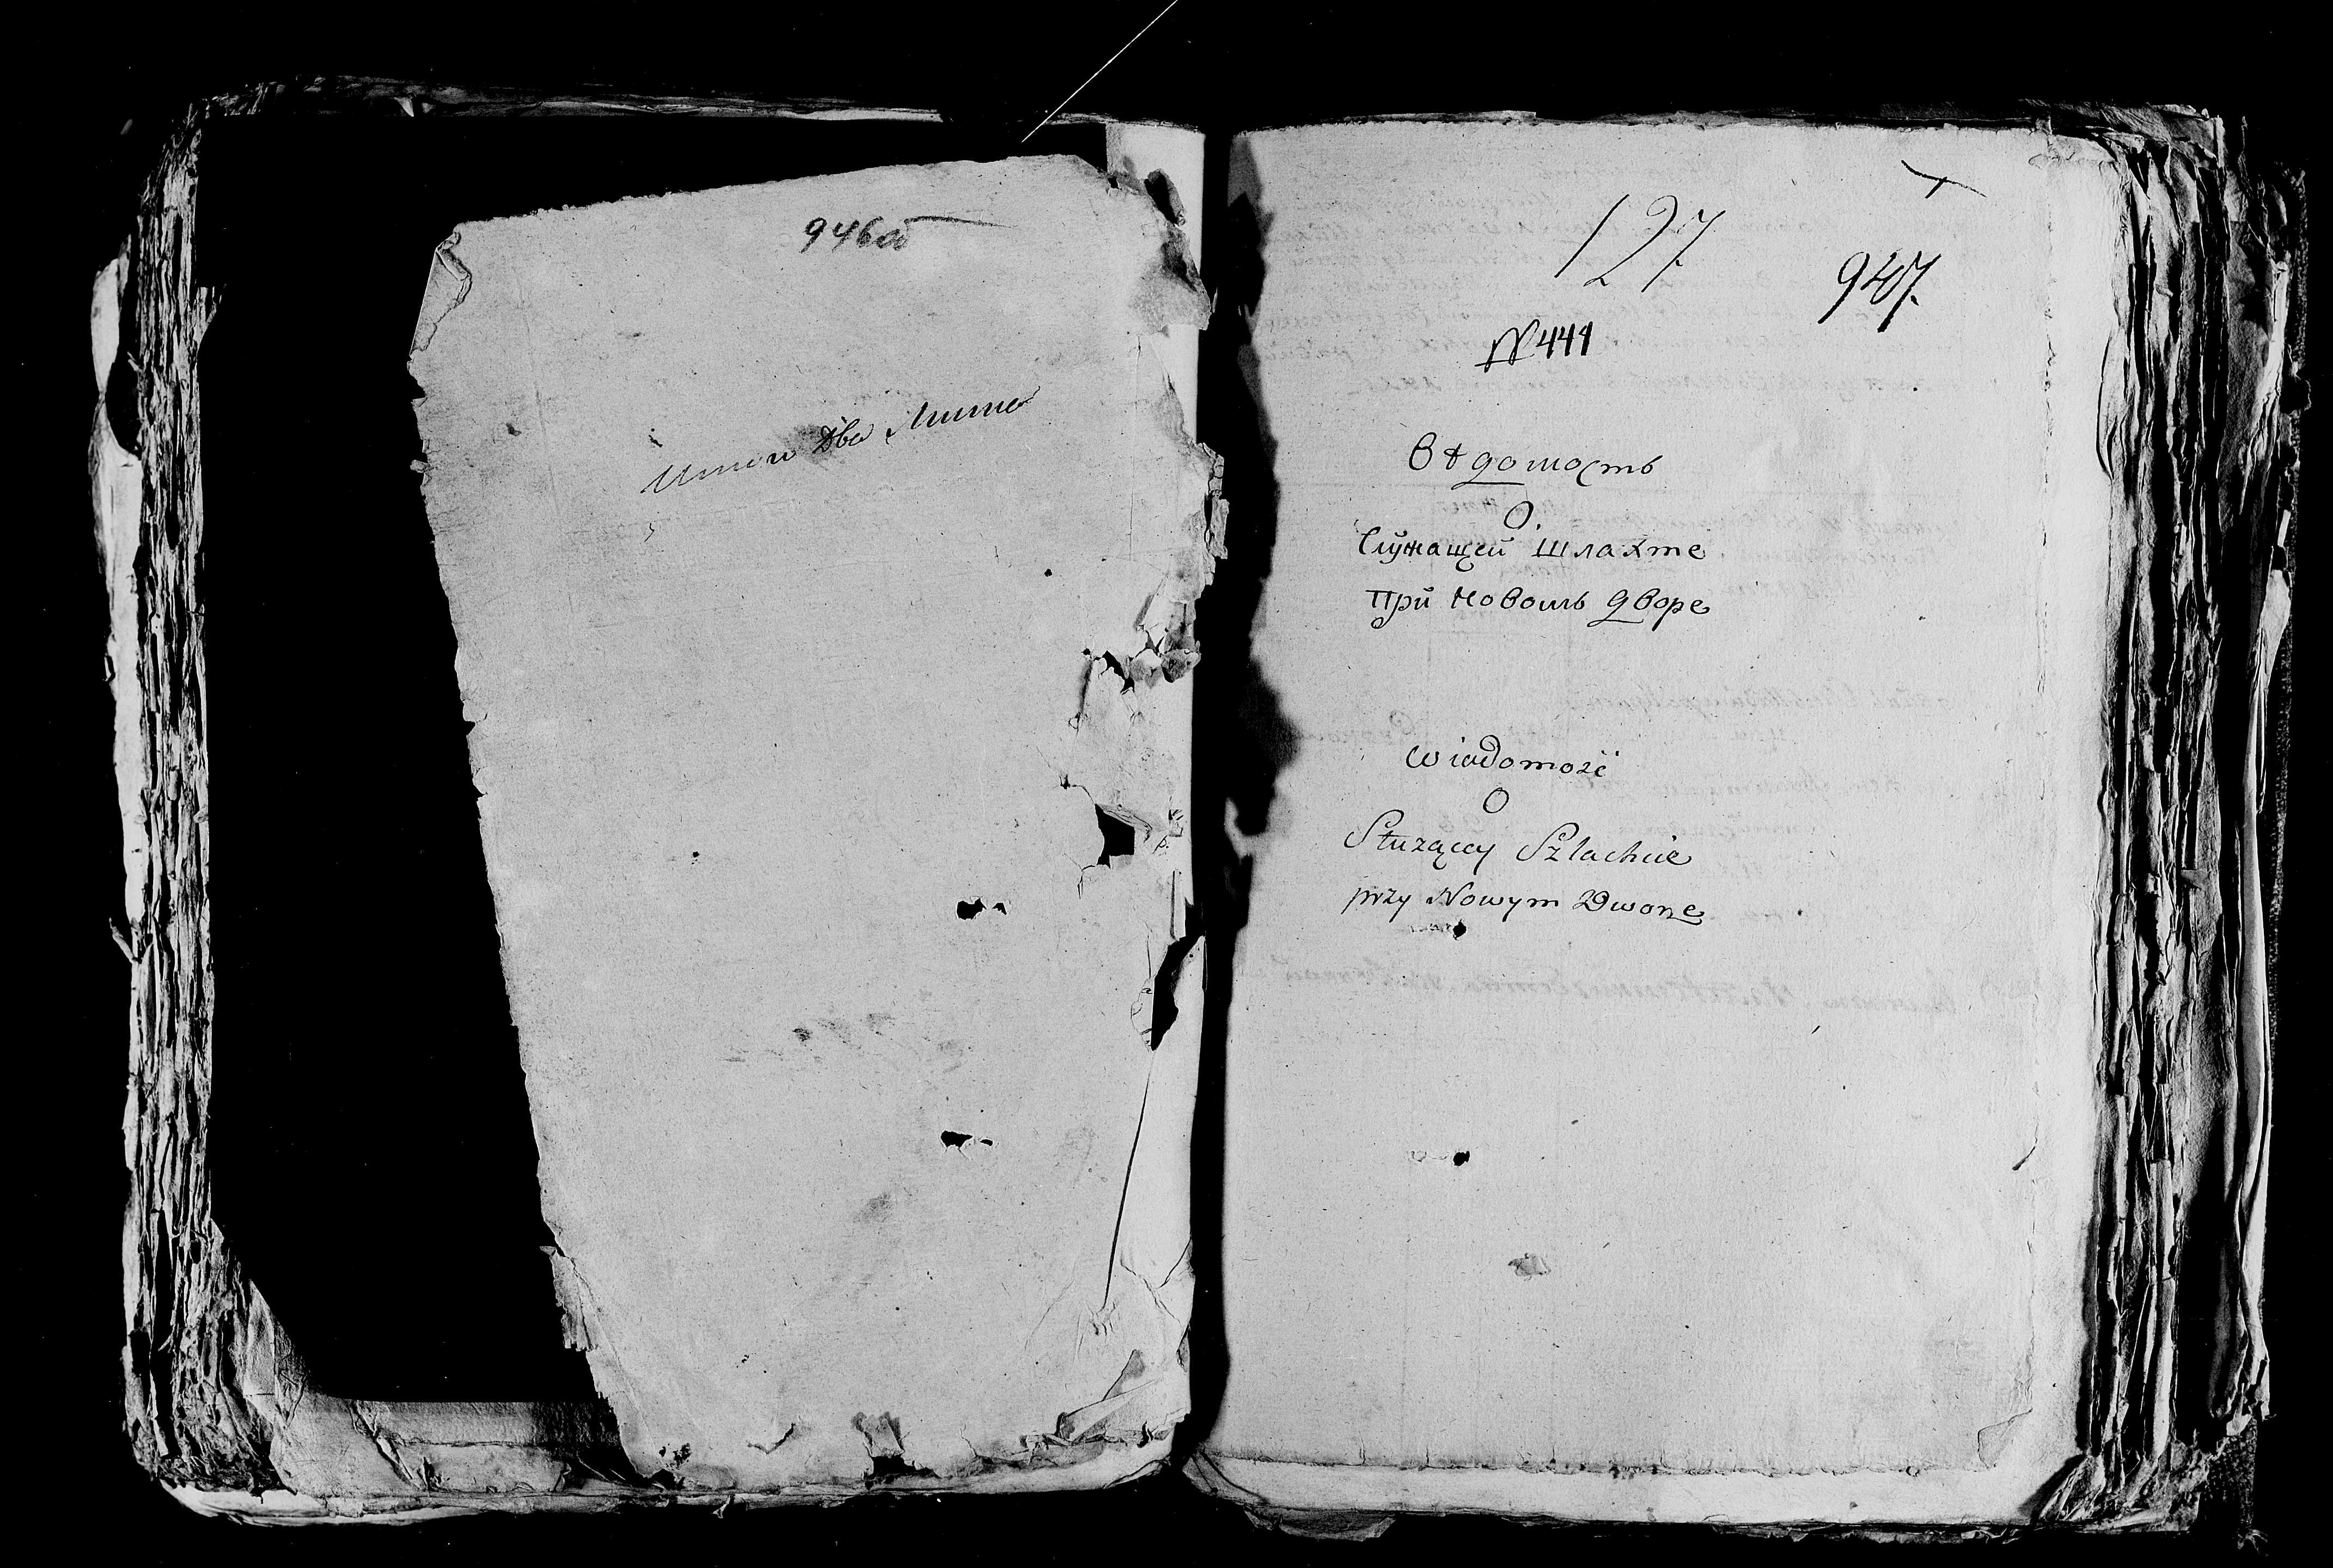 946об
Итого Два Листа
127
947.
№ 444
Вѣдомость
О.
Служащей Шлахте
При Новомъ Дворе
Wiadomość
O
Służącey Szlachcie
przy Nowym Dworze